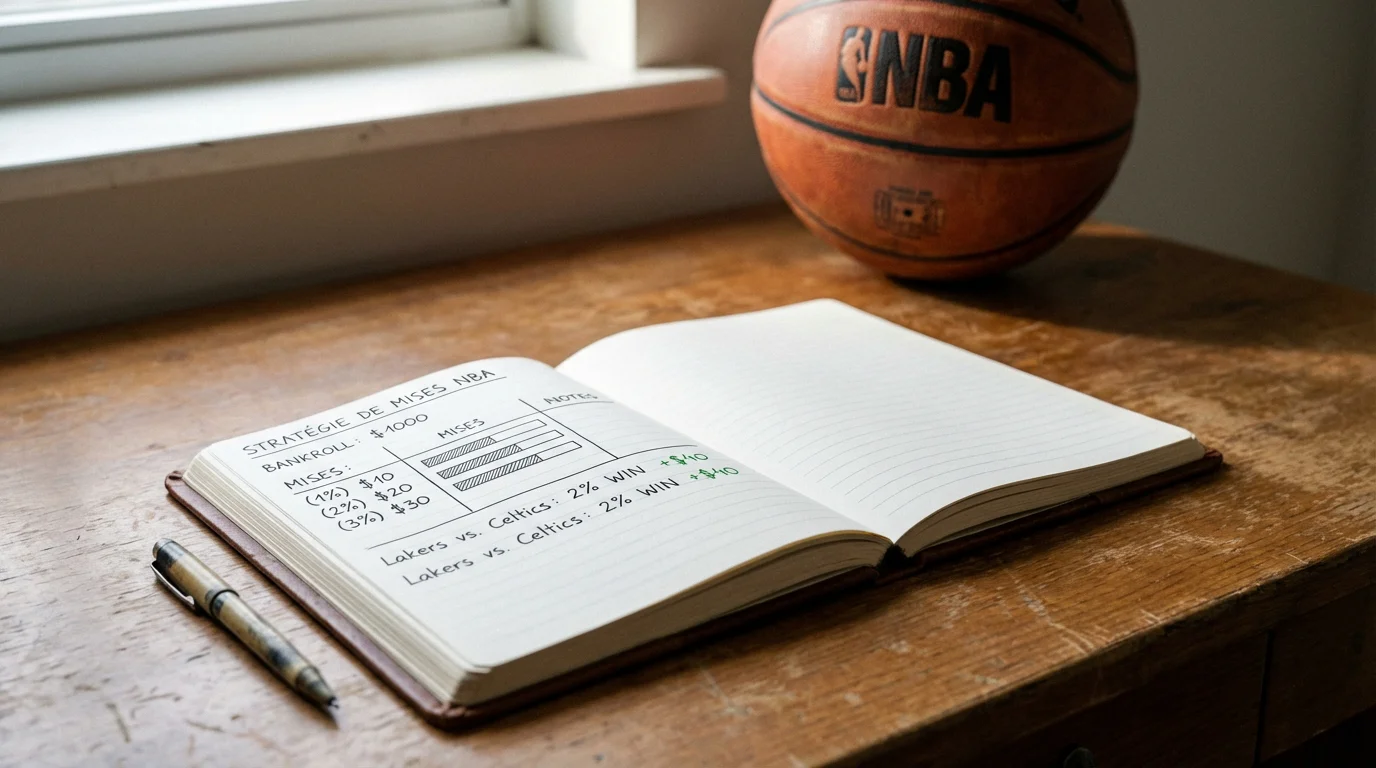 NBA
STRATÉGIE DE MISES NBA
BANKROLL: $1000
MISES:
(1%) $10
(2%) $20
(3%) $30
MISES
NOTES
Lakers vs. Celtics: 2% WIN +$40
Lakers vs. Celtics: 2% WIN +$40